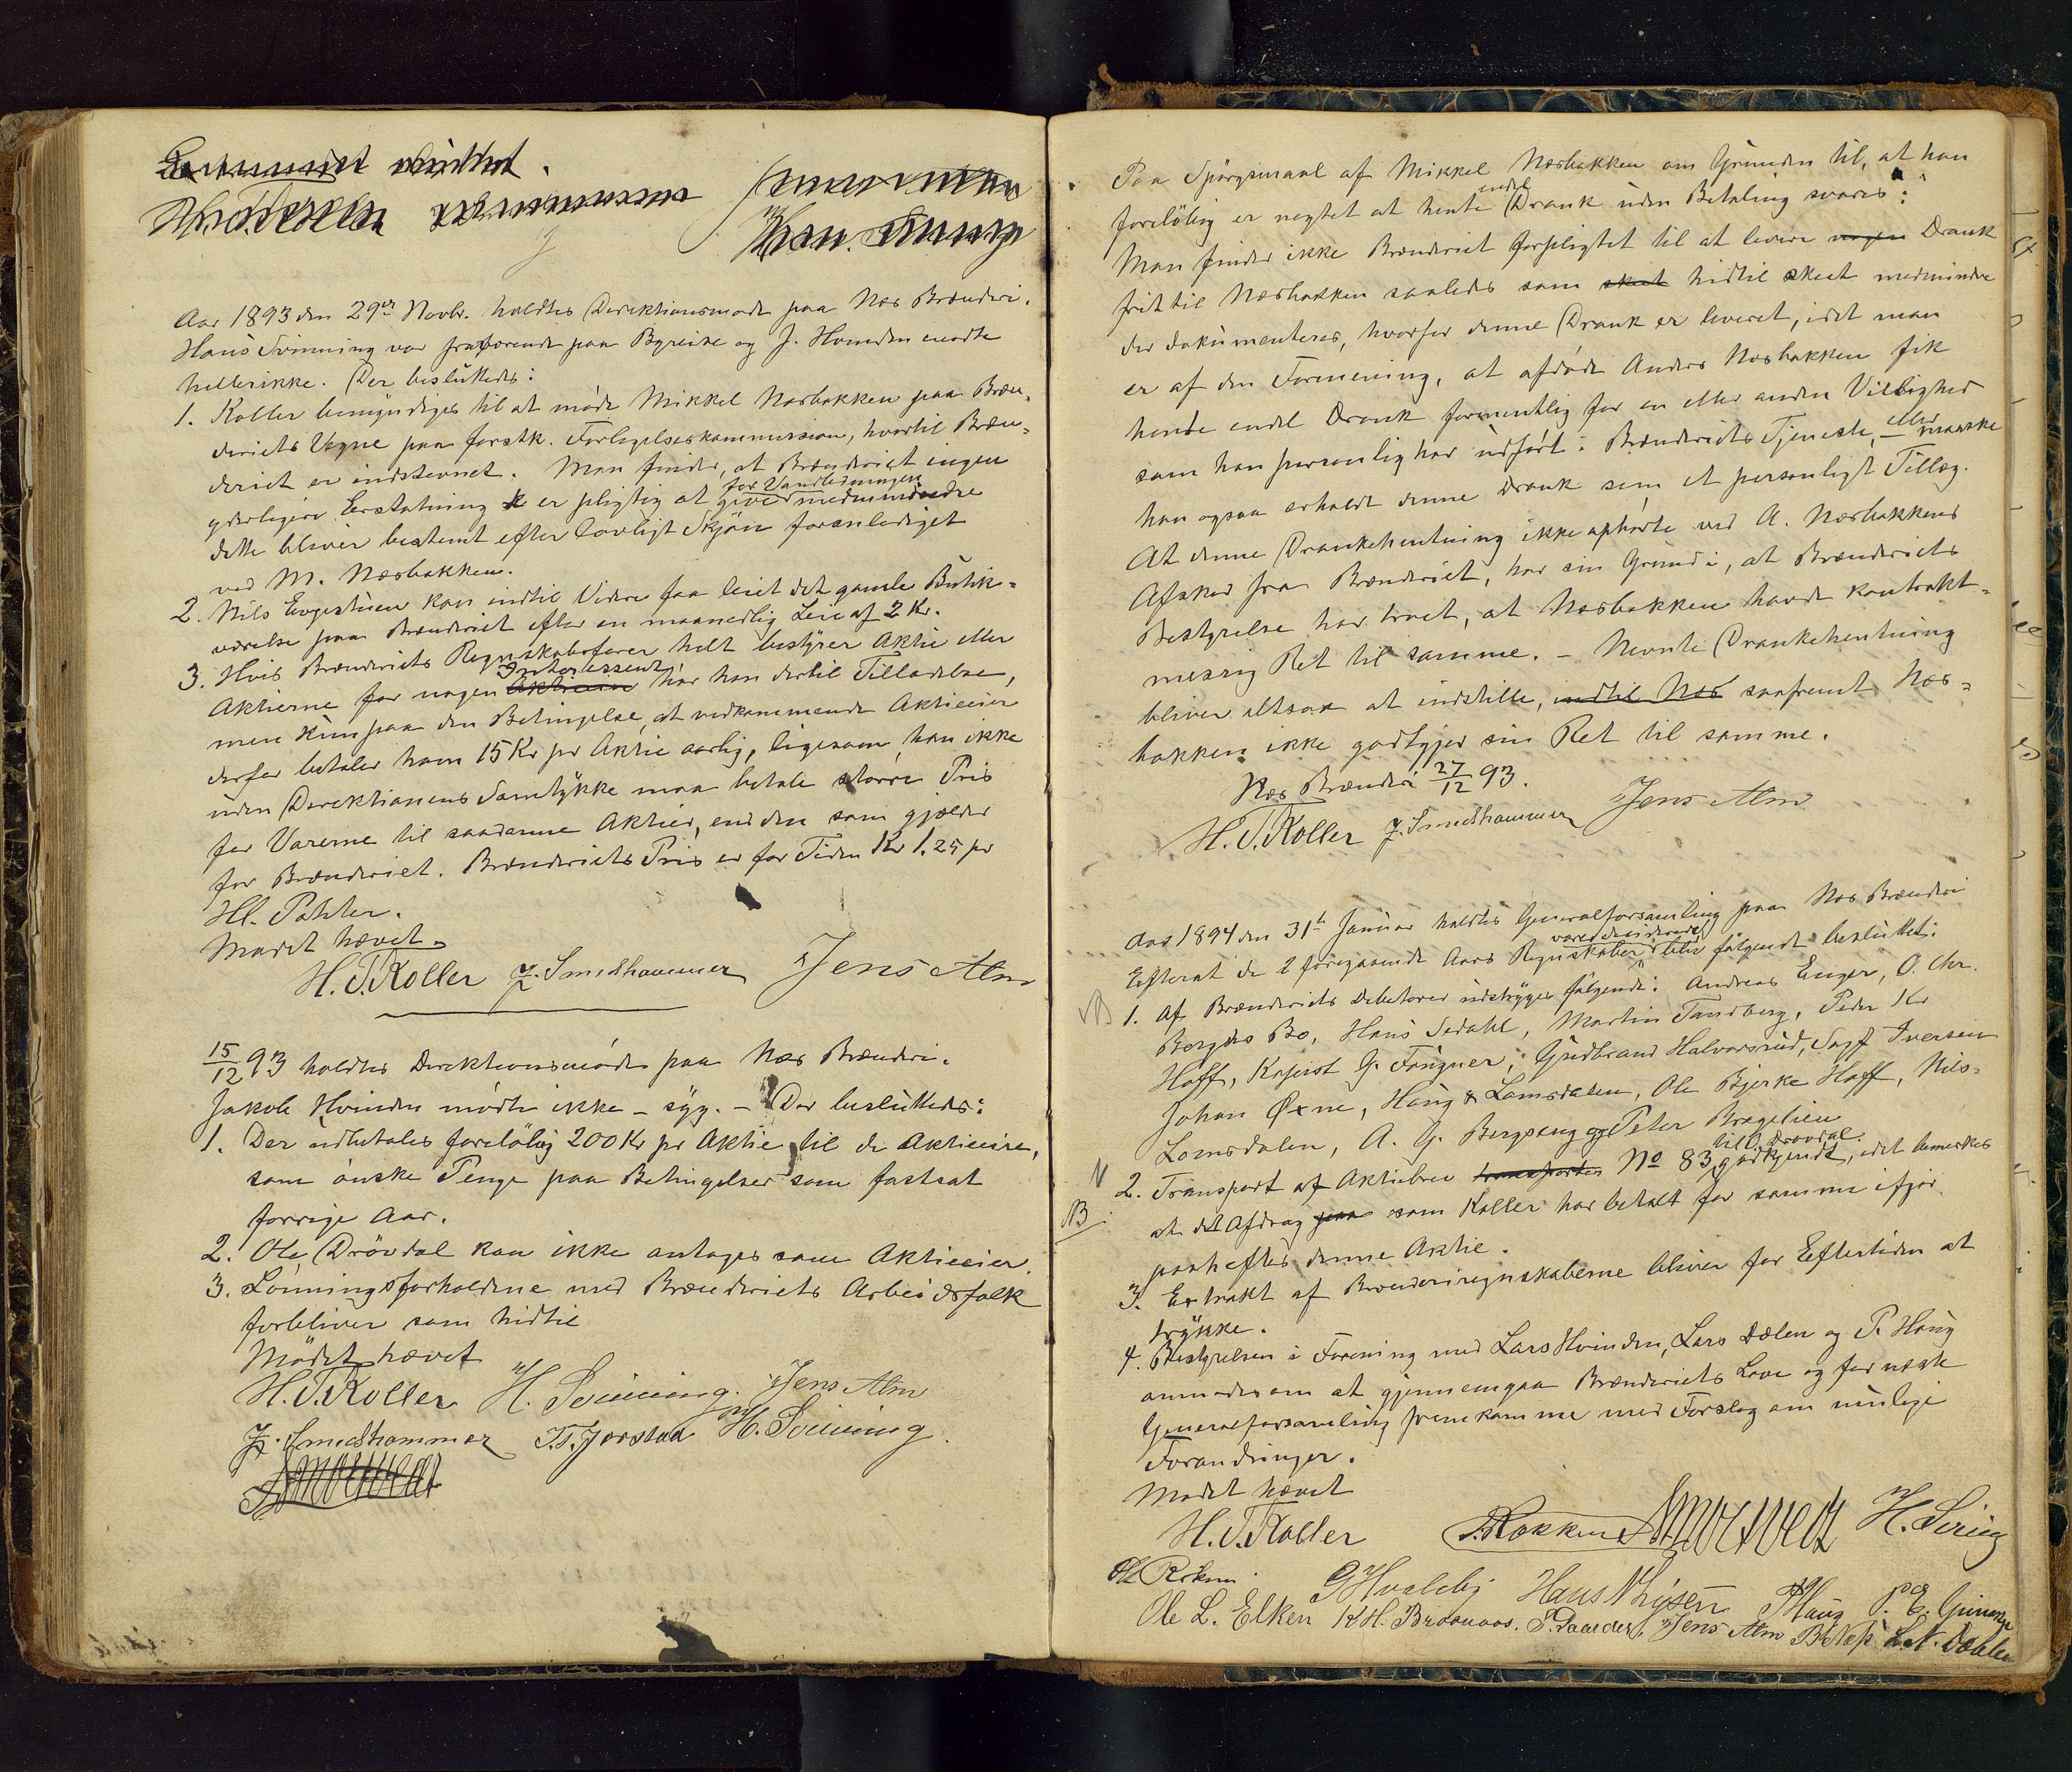 Aar 1893 den 29de Novbr. holdtes Direktionsmøde paa Næs Brænderi.
Hans Svinning var fraværende paa Byreise og J. Hvinden mødte
hellerikke. Der besluttedes:
1. Koller bemyndiges til at møde Mikkel Næsbakken paa Bræn-
deriets Vegne paa forstk. Forligelseskommission, hvortil Bræn-
deriet er indstevnet. Man finder, at Brænderiet ingen
yderligere Erstatning er pligtig at give for Vandledningen medmindre
dette bliver bestemt efter lovligt Skjøn foranlediget
ved M. Næsbakken.
2. Nils Engestuen kan indtil Videre faa leiet det gamle Butik-
værelse paa Brænderiet efter en maanedlig Leie af 2 Kr.
3. Hvis Brænderiets Regnskabsfører helt bestyrer Aktie eller
Aktierne for nogen Aktieeier Interessent har han dertil Tilladelse,
men kun paa den Betingelse, at vedkommende Aktieeier
derfor betaler ham 15 Kr pr Aktie aarlig, ligesom han ikke
uden Direktionens Samtykke maa betale større Pris
for Varerne til saadanne Aktier, end den som gjælder
for Brænderiet. Brænderiets Pris er for Tiden Kr 1.25 pr
Hl. Poteter.
Mødet hævet.
H. T. Koller J. Smedshammer Jens Alm
15/12 93 holdtes Direktionsmøde paa Næs Brænderi.
Jakob Hvinden mødte ikke – syg. – Der besluttedes:
1. Der udbetales foreløbig 200 Kr pr Aktie til de Aktieeire,
som ønske Penge paa Betingelser som fastsat
forrige Aar.
2. Ole Drövdal kan ikke antages som Aktieeier.
3. Lønningsforholdene med Brænderiets Arbeidsfolk
forbliver som hidtil
Mødet hævet
H. T. Koller H. Svinning. Jens Alm
J. Smedshammer T. T. Jorstad H. Svinning.
Paa Spörgsmaal af Mikkel Næsbakken om Grunden til, at han
foreløbig er nægtet at hente endel Drank uden Betaling svares:
Man finder ikke Brænderiet forpligtet til at levere nogen Drank
frit til Næsbakken saaledes som skeet hidtil skeet medmindre
der dokumenteres, hvorfor denne Drank er leveret, idet man
er af den Formening, at afdøde Anders Næsbakken fik
hente endel Drank formentlig for en eller anden Villighed
som han personlig har udført i Brænderiets Tjeneste, – eller maaske
han ogsaa erholdt denne Drank som et personligt Tillæg.
At denne Drankehentning ikke ophørte ved A. Næsbakkens
Afsked fra Brænderiet, har sin Grund i, at Brænderiets
Bestyrelse har troet, at Næsbakken havde kontrakt-
mæssig Ret til samme. – Nævnte Drankehentning
bliver altsaa at indstille, indtil Næs saafremt Næs-
bakken ikke godtgjør sin Ret til samme.
Næs Brænderi 27/12 93.
H. T. Koller J. Smedshammer Jens Alm
Aar 1894 den 31te Januar holdtes Generalforsamling paa Næs Brænderi
Efterat de 2 foregaaende Aars Regnskaber vare desiderede blev følgende besluttet:
1. Af Brænderiets Debitorer udstryges følgende: Andreas Enger, O. Chr.
Bergs Bo, Hans Sedahl, Martin Tandberg, Peder Kr
Hoff, Kopist G. Fougner, Gudbrand Halvorsrud, Sogf Iversen
Johan Øxne, Haug & Lomsdalen, Ole Bjerke Hoff, Nils
Lomsdalen, A. G. Bergseng og Peter Brogelien
2. Transport af Aktiebrev transporten No 83 til O. Drövdal godkjendt, idet bemærkes
NB
at det Afdrag paa som Koller har betalt for samme ifjor
paaheftes denne Aktie.
3. Extrakt af Brænderiregnskaberne bliver for Eftertiden at
trykke.
4. Bestyrelsen i Forening med Lars Hvinden, Lars Dælen og P. Haug
anmodes om at gjennemgaa Brænderiets Love og for næste
Generalforsamling fremkomme med Forslag om mulige
Forandringer.
Mødet hævet
H. T. Koller Rokken H. Svining
Ole Rökne G Hvaleby Hans Thysen P Haug P. E. Grimsge
Ole L. Elken K H. Braanaas. P. Paarder, Jens Alm L. N. Dæhlen